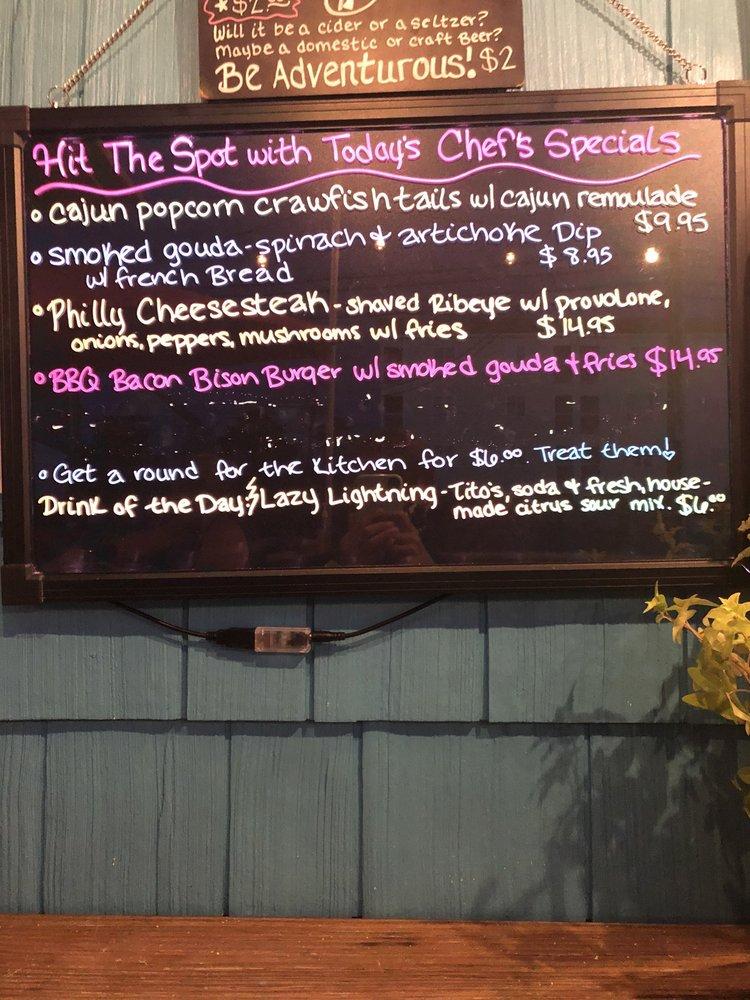 $2.
Will it be a cider or a seltzer?
Maybe a domestic or craft Beer?
Be Adventurous! $2
Hit The Spot with Today's Chef's Specials
• cajun popcorn crawfish tails w/ cajun remoulade
$9.95
• smoked gouda-spinach & artichoke Dip
w/ french Bread $8.95
• Philly Cheesesteak - shaved Ribeye w/ provolone,
onions, peppers, mushrooms w/ fries $14.95
• BBQ Bacon Bison Burger w/ smoked gouda & fries $14.95
• Get a round for the Kitchen for $6.00. Treat them!
Drink of the Day: Lazy Lightning - Tito's, soda & fresh, house-
made citrus sour mix. $6.00